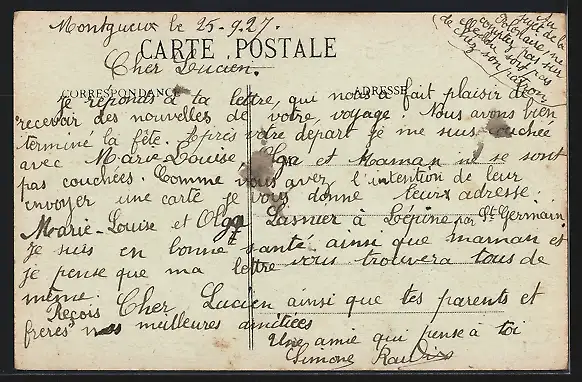 Montgueux le 25-9.27.
CARTE POSTALE
Cher Lucien.
CORRESPONDANCE
ADRESSE
Je réponds à ta lettre, qui nous a fait plaisir de
recevoir des nouvelles de votre voyage. Nous avons bien
terminé la fête. Après votre départ je me suis couchée
avec Marie Louise Olga et Maman ne se sont
pas couchées. Comme vous avez l'intention de leur
envoyer une carte je vous donne leurs adresse:
Marie-Louise et Olga Lasnier à Lépine par St Germain
Je suis en bonne santé ainsi que maman et
je pense que ma lettre vous trouvera tous de
même.
Reçois Cher Lucien ainsi que tes parents et
frères nos meilleures amitiées
Une amie qui pense à toi
Simone
Au sujet de la
Polonaise ne
comptez pas sur
elle
chez son patron